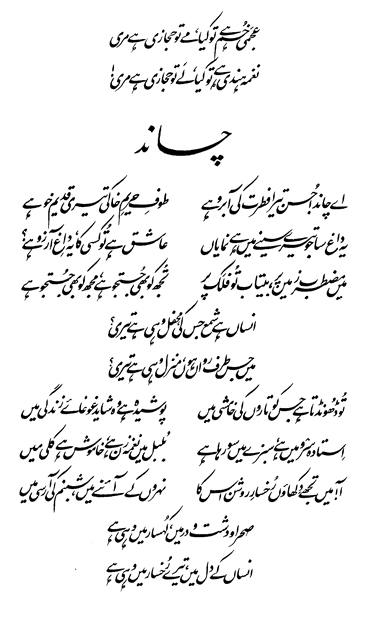 عجمی خُم ہے تو کیا، مے تو حجازی ہے مری
نغمہ ہندی ہے تو کیا، لَے تو حجازی ہے مری!
چاند
اے چاند! حُسن تیرا فطرت کی آبرو ہے طوفِ حریمِ خاکی تیری قدیم خو ہے
یہ داغ سا جو تیرے سینے میں ہے نمایاں عاشق ہے تُو کسی کا، یہ داغِ آرزو ہے؟
میں مضطرب زمیں پر، بیتاب تُو فلک پر تجھ کو بھی جستجو ہے، مجھ کو بھی جستجو ہے
انساں ہے شمع جس کی، محفل وہی ہے تیری؟
میں جس طرف رواں ہوں، منزل وہی ہے تیری؟
تُو ڈھونڈتا ہے جس کو تاروں کی خامشی میں پوشیدہ ہے وہ شاید غوغائے زندگی میں
اِستادہ سرو میں ہے، سبزے میں سو رہا ہے بُلبل میں نغمہ زن ہے، خاموش ہے کلی میں
آ! میں تجھے دکھاؤں رُخسارِ روشن اس کا نہروں کے آئنے میں، شبنم کی آرسی میں
صحرا و دشت و در میں، کُہسار میں وہی ہے
انساں کے دل میں، تیرے رُخسار میں وہی ہے